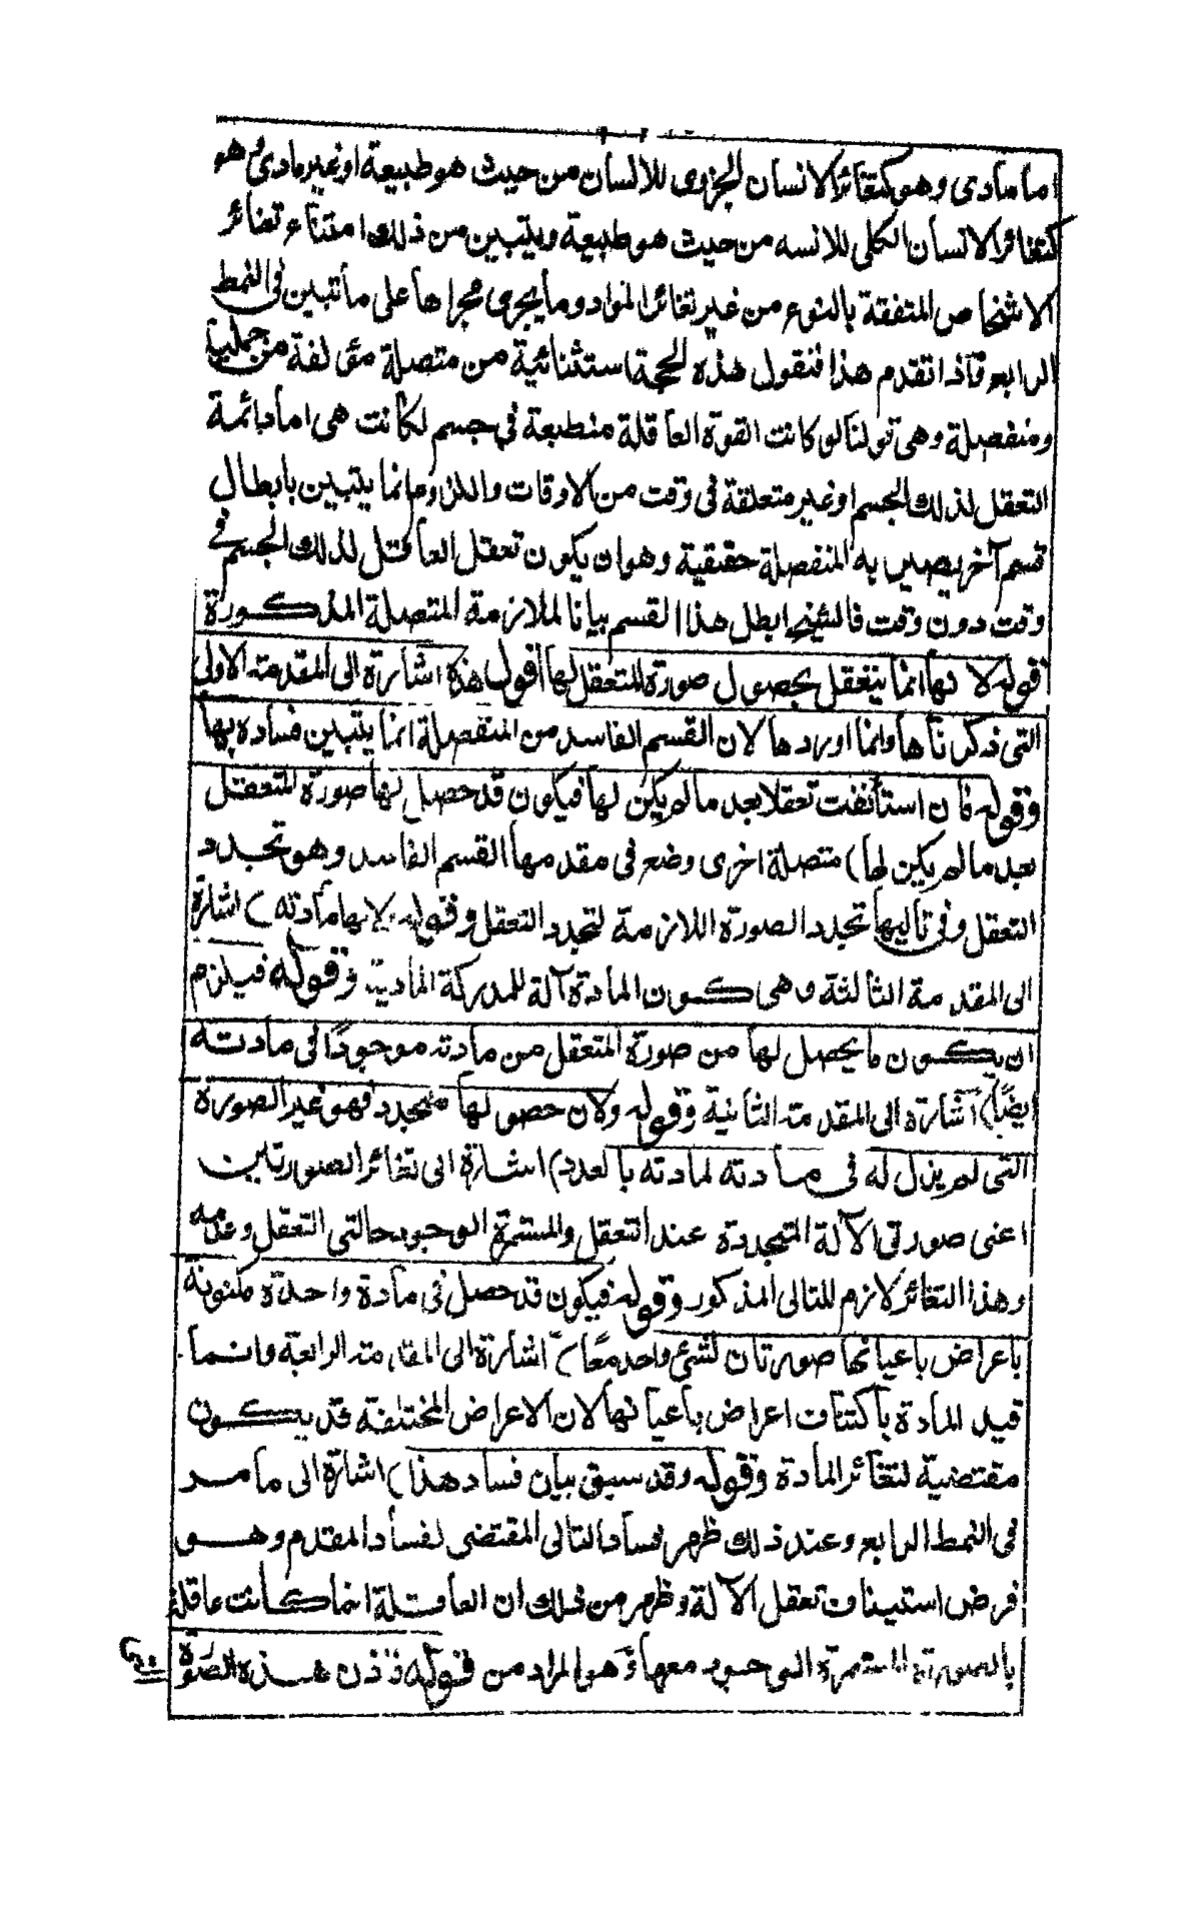 اما مادى وهو كتغائر الانسان الجزوى للانسان من حيث هو طبيعة او غير مادى وهو
كتغائر الانسان الكلى للانسه من حيث هو طبيعة ويتبين من ذلك امتناع تغائر
الاشخاص المتفقة بالنوع من غير تغائر المواد وما يجرى مجراها على ما تبين فى النمط
الرابع فاذا تقدم هذا فنقول هذه الحجة استثنائية من متصلة مؤلفة من حملية
ومنفصلة وهى قولنا لو كانت القوة العاقلة منطبعة فى جسم لكانت هى اما دائمة
التعقل لذلك الجسم او غير متعلقة فى وقت من الاوقات واللزوم انما يتبين بابطال
قسم آخر يصير به المنفصلة حقيقية وهو ان يكون تعقل العاقل لذلك الجسم فى
وقت دون وقت فالشيخ ابطل هذا القسم بيانا لملازمة المتصلة المذكورة
قوله لانها انما يتعقل بحصول صورة المتعقل لها اقول هذه اشارة الى المقدمة الاولى
التى ذكرناها وانما اوردها لان القسم الفاسد من المنفصلة انما يتبين فساده بها
وقوله فان استأنفت تعقلا بعد ما لم يكن لها فيكون قد حصل لها صورة المتعقل
بعد ما لم يكن لها) متصلة اخرى وضع فى مقدمها القسم الفاسد وهو تجدد
التعقل وفى تاليها تجدد الصورة اللازمة لتجدد التعقل وقوله لانها مادته) اشارة
الى المقدمة الثالثة وهى كون المادة آلة للمدركة المادية وقوله فيلزم
ان يكون ما يحصل لها من صورة المتعقل من مادته موجودًا فى مادته
ايضًا) اشارة الى المقدمة الثانية وقوله ولان حصولها متجدد فهو غير الصورة
التى لم يزل له فى مادته لمادته بالعدد) اشارة الى تغائر الصورتين
اعنى صورتى الآلة المتجددة عند التعقل والمستمرة الوجود حالتى التعقل وعدمه
وهذا التغائر لازم للتالى المذكور وقوله فيكون قد حصل فى مادة واحدة مكنونة
باعراض باعيانها صورتان لشئ واحد معًا) اشارة الى المقدمة الرابعة وانما
قيد المادة باكتناف اعراض باعيانها لان الاعراض المختلفة قد يكون
مقتضية لتغائر المادة وقوله وقد سبق بيان فساد هذا) اشارة الى ما مر
فى النمط الرابع وعند ذلك ظهر فساد التالى المقتضى لفساد المقدم وهو
فرض استيناف تعقل الآلة وظهر من ذلك ان العاقلة انما كانت عاقلة
بالصورة المستمرة الوجود معها وهو المراد من قوله فاذن هذه الصورة